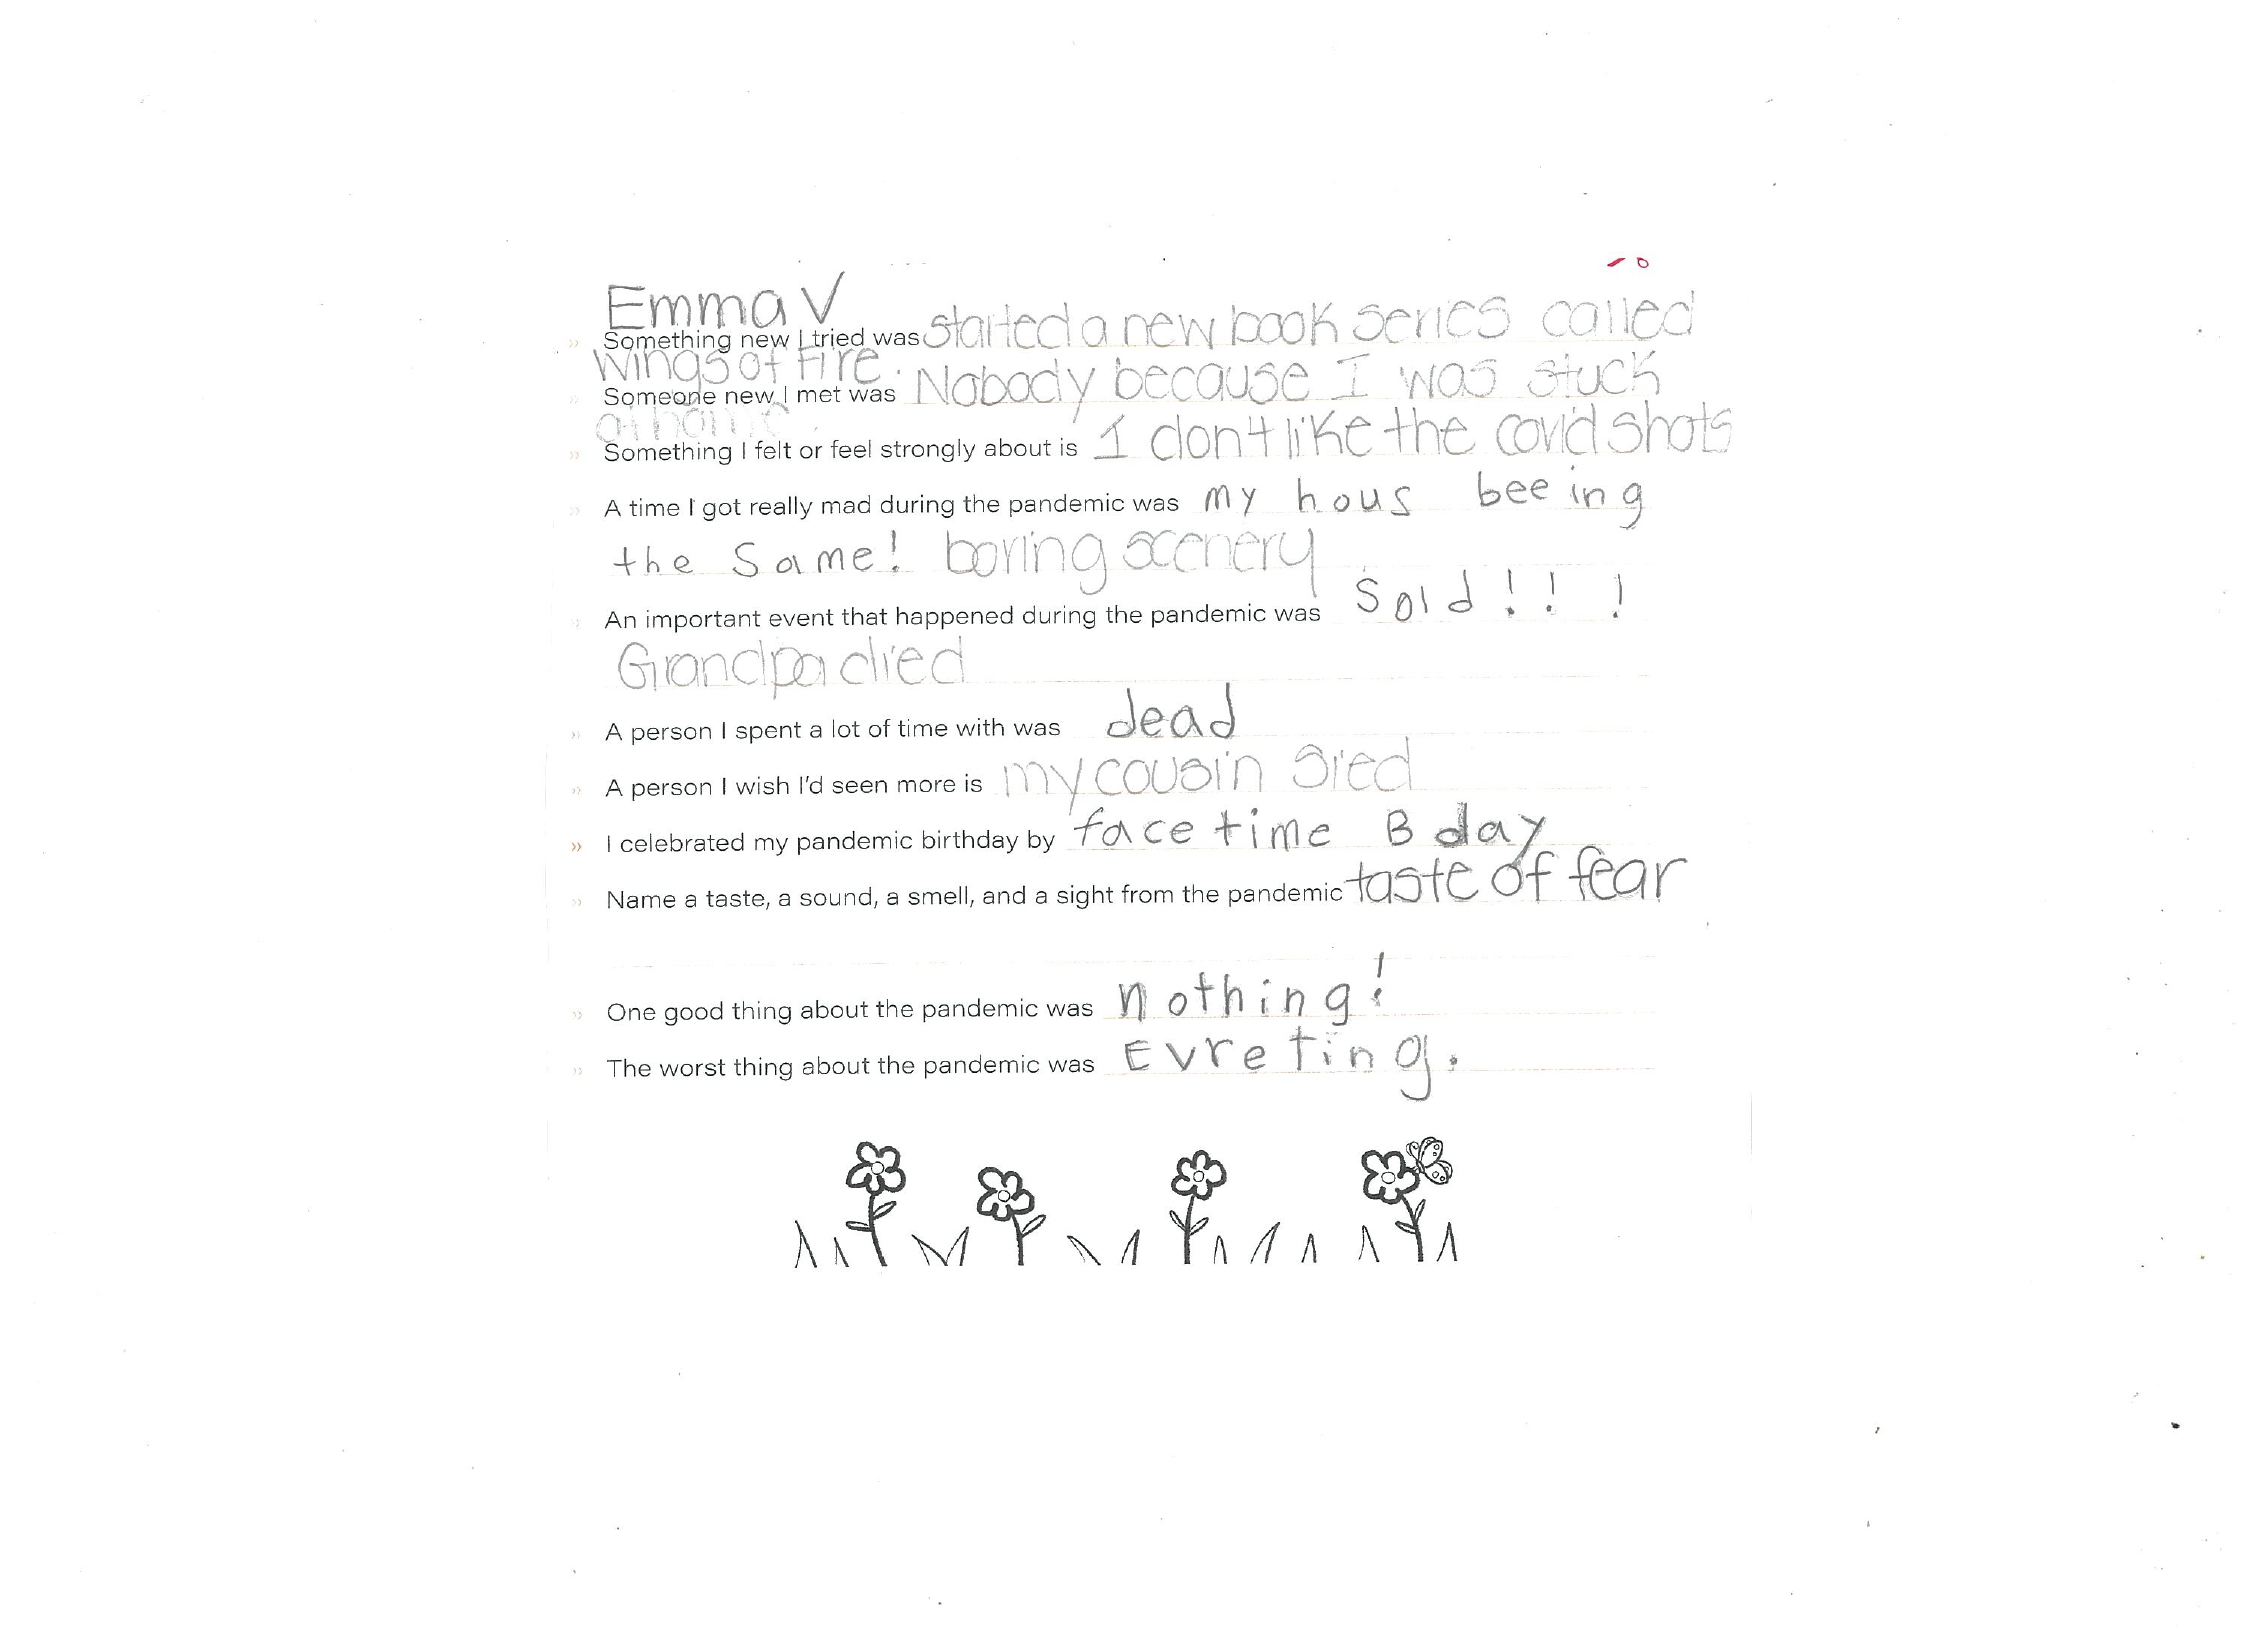 Emma V
» Something new I tried was started a new book series called
Wings of Fire.
» Someone new I met was Nobody because I was stuck
at home.
» Something I felt or feel strongly about is I don't like the covid shots
» A time I got really mad during the pandemic was my hous bee ing
the Same! boring scenery
» An important event that happened during the pandemic was Sold!! !
Grandpa died
» A person I spent a lot of time with was dead
» A person I wish I'd seen more is my cousin Sied
» I celebrated my pandemic birthday by face time B day
» Name a taste, a sound, a smell, and a sight from the pandemic taste of fear
» One good thing about the pandemic was nothing!
» The worst thing about the pandemic was Evreting.